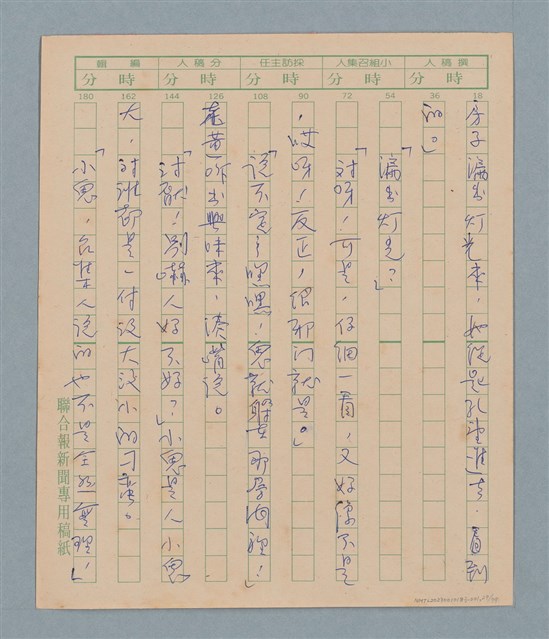 撰稿人 小組召集人 採訪主任 分稿人 編輯
時 分 時 分 時 分 時 分 時 分
18 36 54 72 90 108 126 144 162 180
房子漏出灯光來，她從是孔望進去，看到
的。」
「漏出灯光？」
「对呀！可是，仔細一看，又好像不是
，哎呀！反正，很邪门就是。」
「說不定，嘿嘿！鬼就躲在那房间裡！」
黃一昨出興味來，湊嘴說。
「討厭！別嚇人好不好？」小鬼是人小鬼
大，对誰都是一付沒大沒小的
「小鬼，台某人說的也不是全然無理！」
聯合報新聞專用稿紙